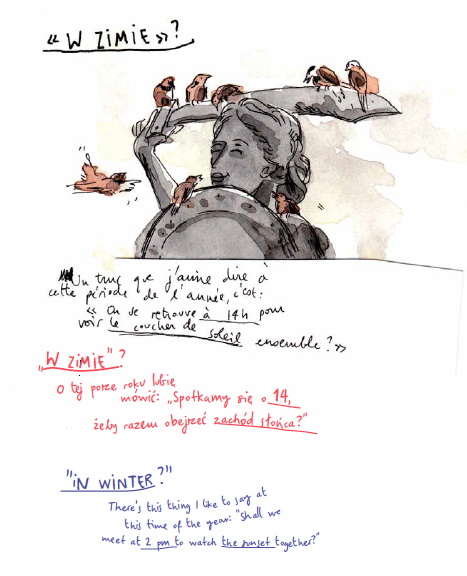 « W ZIMIE »?
Un truc que j'aime dire à
cette période de l'année, c'est:
« On se retrouve à 14h pour
voir le coucher de soleil ensemble? »
„W ZIMIE"?
O tej porze roku lubię
mówić: „Spotkamy się o 14,
żeby razem obejrzeć zachód słońca?"
"IN WINTER?"
There's this thing I like to say at
this time of the year: "Shall we
meet at 2 pm to watch the sunset together?"